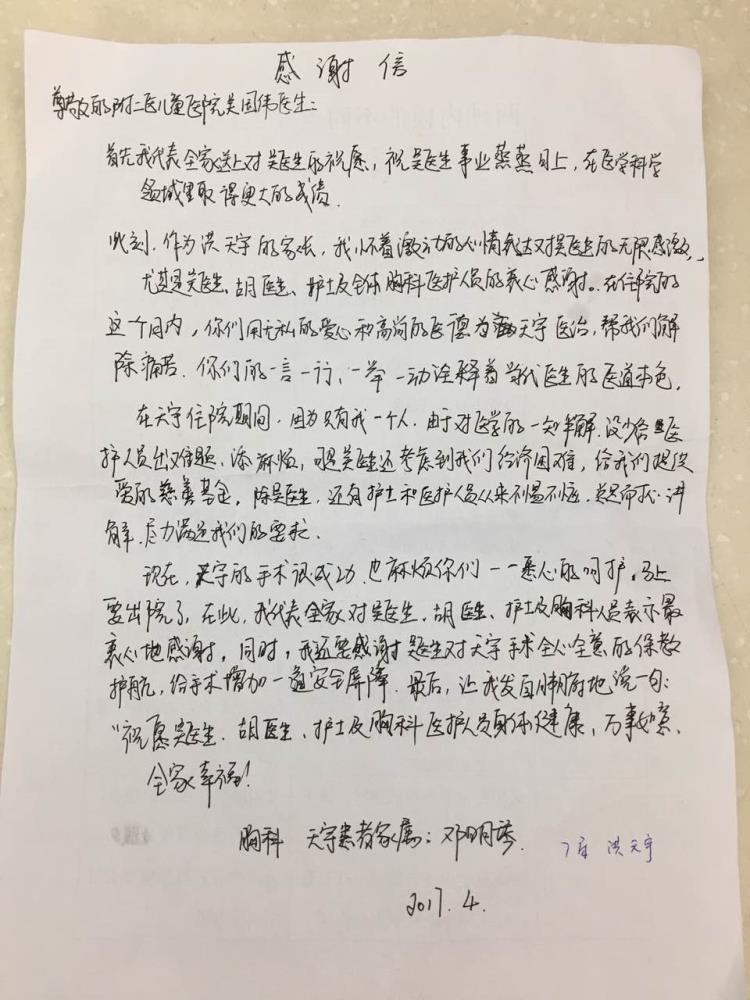 感谢信
尊敬的附二医儿童医院吴国伟医生:
首先我代表全家送上对吴医生的祝愿,祝吴医生事业蒸蒸日上,在医学科学
领域里取得更大的成绩.
此刻.作为洪天宇的家长,我怀着激动的心情表达对吴医生的无限感激,
尤其是吴医生、胡医生、护士及全体胸科医护人员的衷心感谢.在住院的
这个月内,你们用无私的爱心和高尚的医德为天宇医治,帮我们解
除痛苦.你们的一言一行、一举一动诠释着当代医生的医道本色.
在天宇住院期间.因为只有我一个人.由于对医学的一知半解.没少给医
护人员出难题、添麻烦,可是吴医生还考虑到我们经济困难,给我们提供
爱的慈善基金.除吴医生.还有护士和医护人员从来不愠不恼.总是耐心讲
解.尽力满足我们的要求.
现在,天宇的手术很成功.也麻烦你们一一悉心的呵护.马上
要出院了.在此,我代表全家对吴医生.胡医生、护士及胸科人员表示最
衷心地感谢.同时,我还要感谢吴医生对天宇手术全心全意的保驾
护航,给手术增加一道安全屏障.最后,让我发自肺腑地说一句:
"祝愿吴医生.胡医生、护士及胸科医护人员身体健康,万事如意、
全家幸福!
胸科 天宇患者家属:邓明 7床 洪天宇
2017.4.